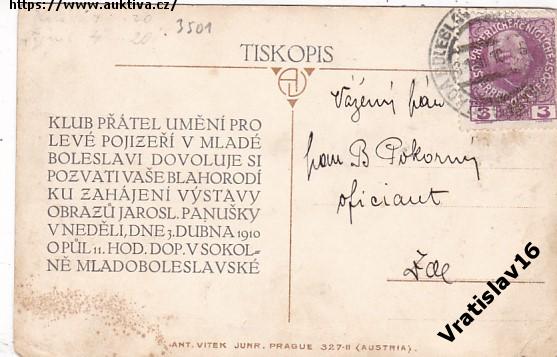 https://www.auktiva.cz/
20
20
3501
TISKOPIS
KLUB PŘÁTEL UMĚNÍ PRO
LEVÉ POJIZEŘÍ V MLADÉ
BOLESLAVI DOVOLUJE SI
POZVATI VAŠE BLAHORODÍ
KU ZAHÁJENÍ VÝSTAVY
OBRAZŮ JAROSL. PANUŠKY
V NEDĚLI, DNE 3. DUBNA 1910
O PŮL 11. HOD. DOP. V SOKOL-
NĚ MLADOBOLESLAVSKÉ
Vážený pán
pan B Pokorný
oficiant
Zde
3 3
ANT. VITEK JUNR. PRAGUE 327-II (AUSTRIA).
Vratislav16